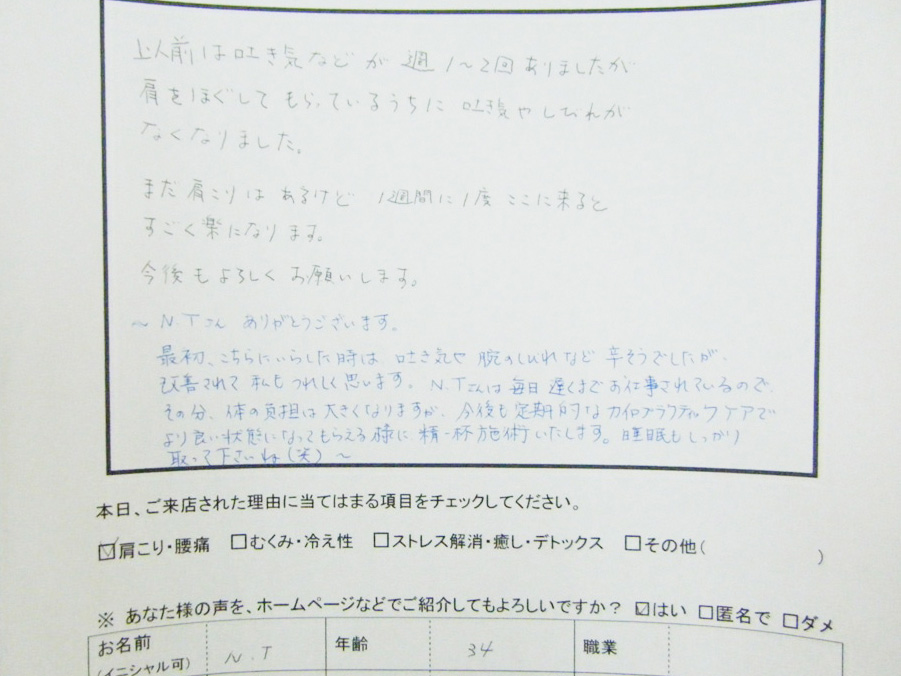 以前は吐き気などが週1〜2回ありましたが
肩をほぐしてもらっているうちに吐き気やしびれが
なくなりました。
まだ肩こりはあるけど1週間に1度ここに来ると
すごく楽になります。
今後もよろしくお願いします。
〜N.Tさん ありがとうございます。
最初、こちらにいらした時は吐き気や腕のしびれなど辛そうでしたが、
改善されて私もうれしく思います。N.Tさんは毎日遅くまでお仕事されているので、
その分、体の負担は大きくなりますが、今後も定期的なカイロプラクティックケアで
より良い状態になってもらえる様に、精一杯施術いたします。睡眠もしっかり
取って下さいね(笑)〜
本日、ご来店された理由に当てはまる項目をチェックしてください。
☑肩こり・腰痛 □むくみ・冷え性 □ストレス解消・癒し・デトックス □その他( )
※ あなた様の声を、ホームページなどでご紹介してもよろしいですか? ☑はい □匿名で □ダメ
お名前 N.T 年齢 34 職業
(イニシャル可)